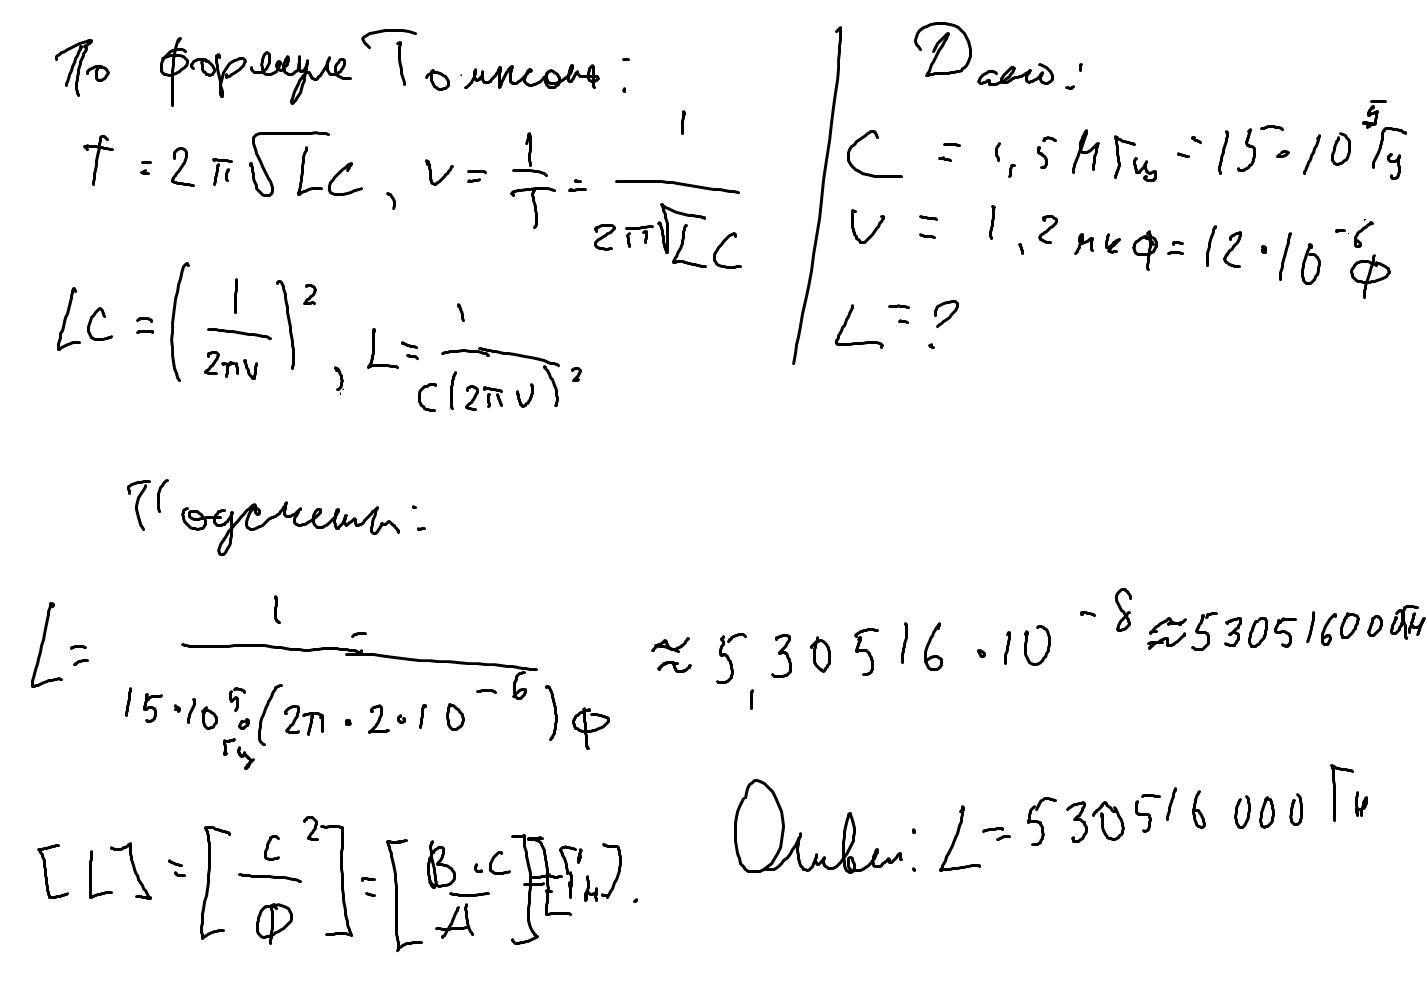 По формуле Томпсона:
T = 2π√LC, ν = 1/T = 1/(2π√LC)
LC = (1/(2πν))², L = 1/(C(2πν)²)
Дано:
C = 1,5 МГц = 15·10⁵ Гц
ν = 1,2 мкФ = 12·10⁻⁶ Ф
L = ?
Подсчеты:
L = 1/(15·10⁵ Гц·(2π·2·10⁻⁶)Ф) = ≈ 5,30516·10⁻⁸ ≈ 530516000 Гн
[L] = [с²/Ф] = [В·с/А] = [Гн].
Ответ: L = 530516 000 Гн